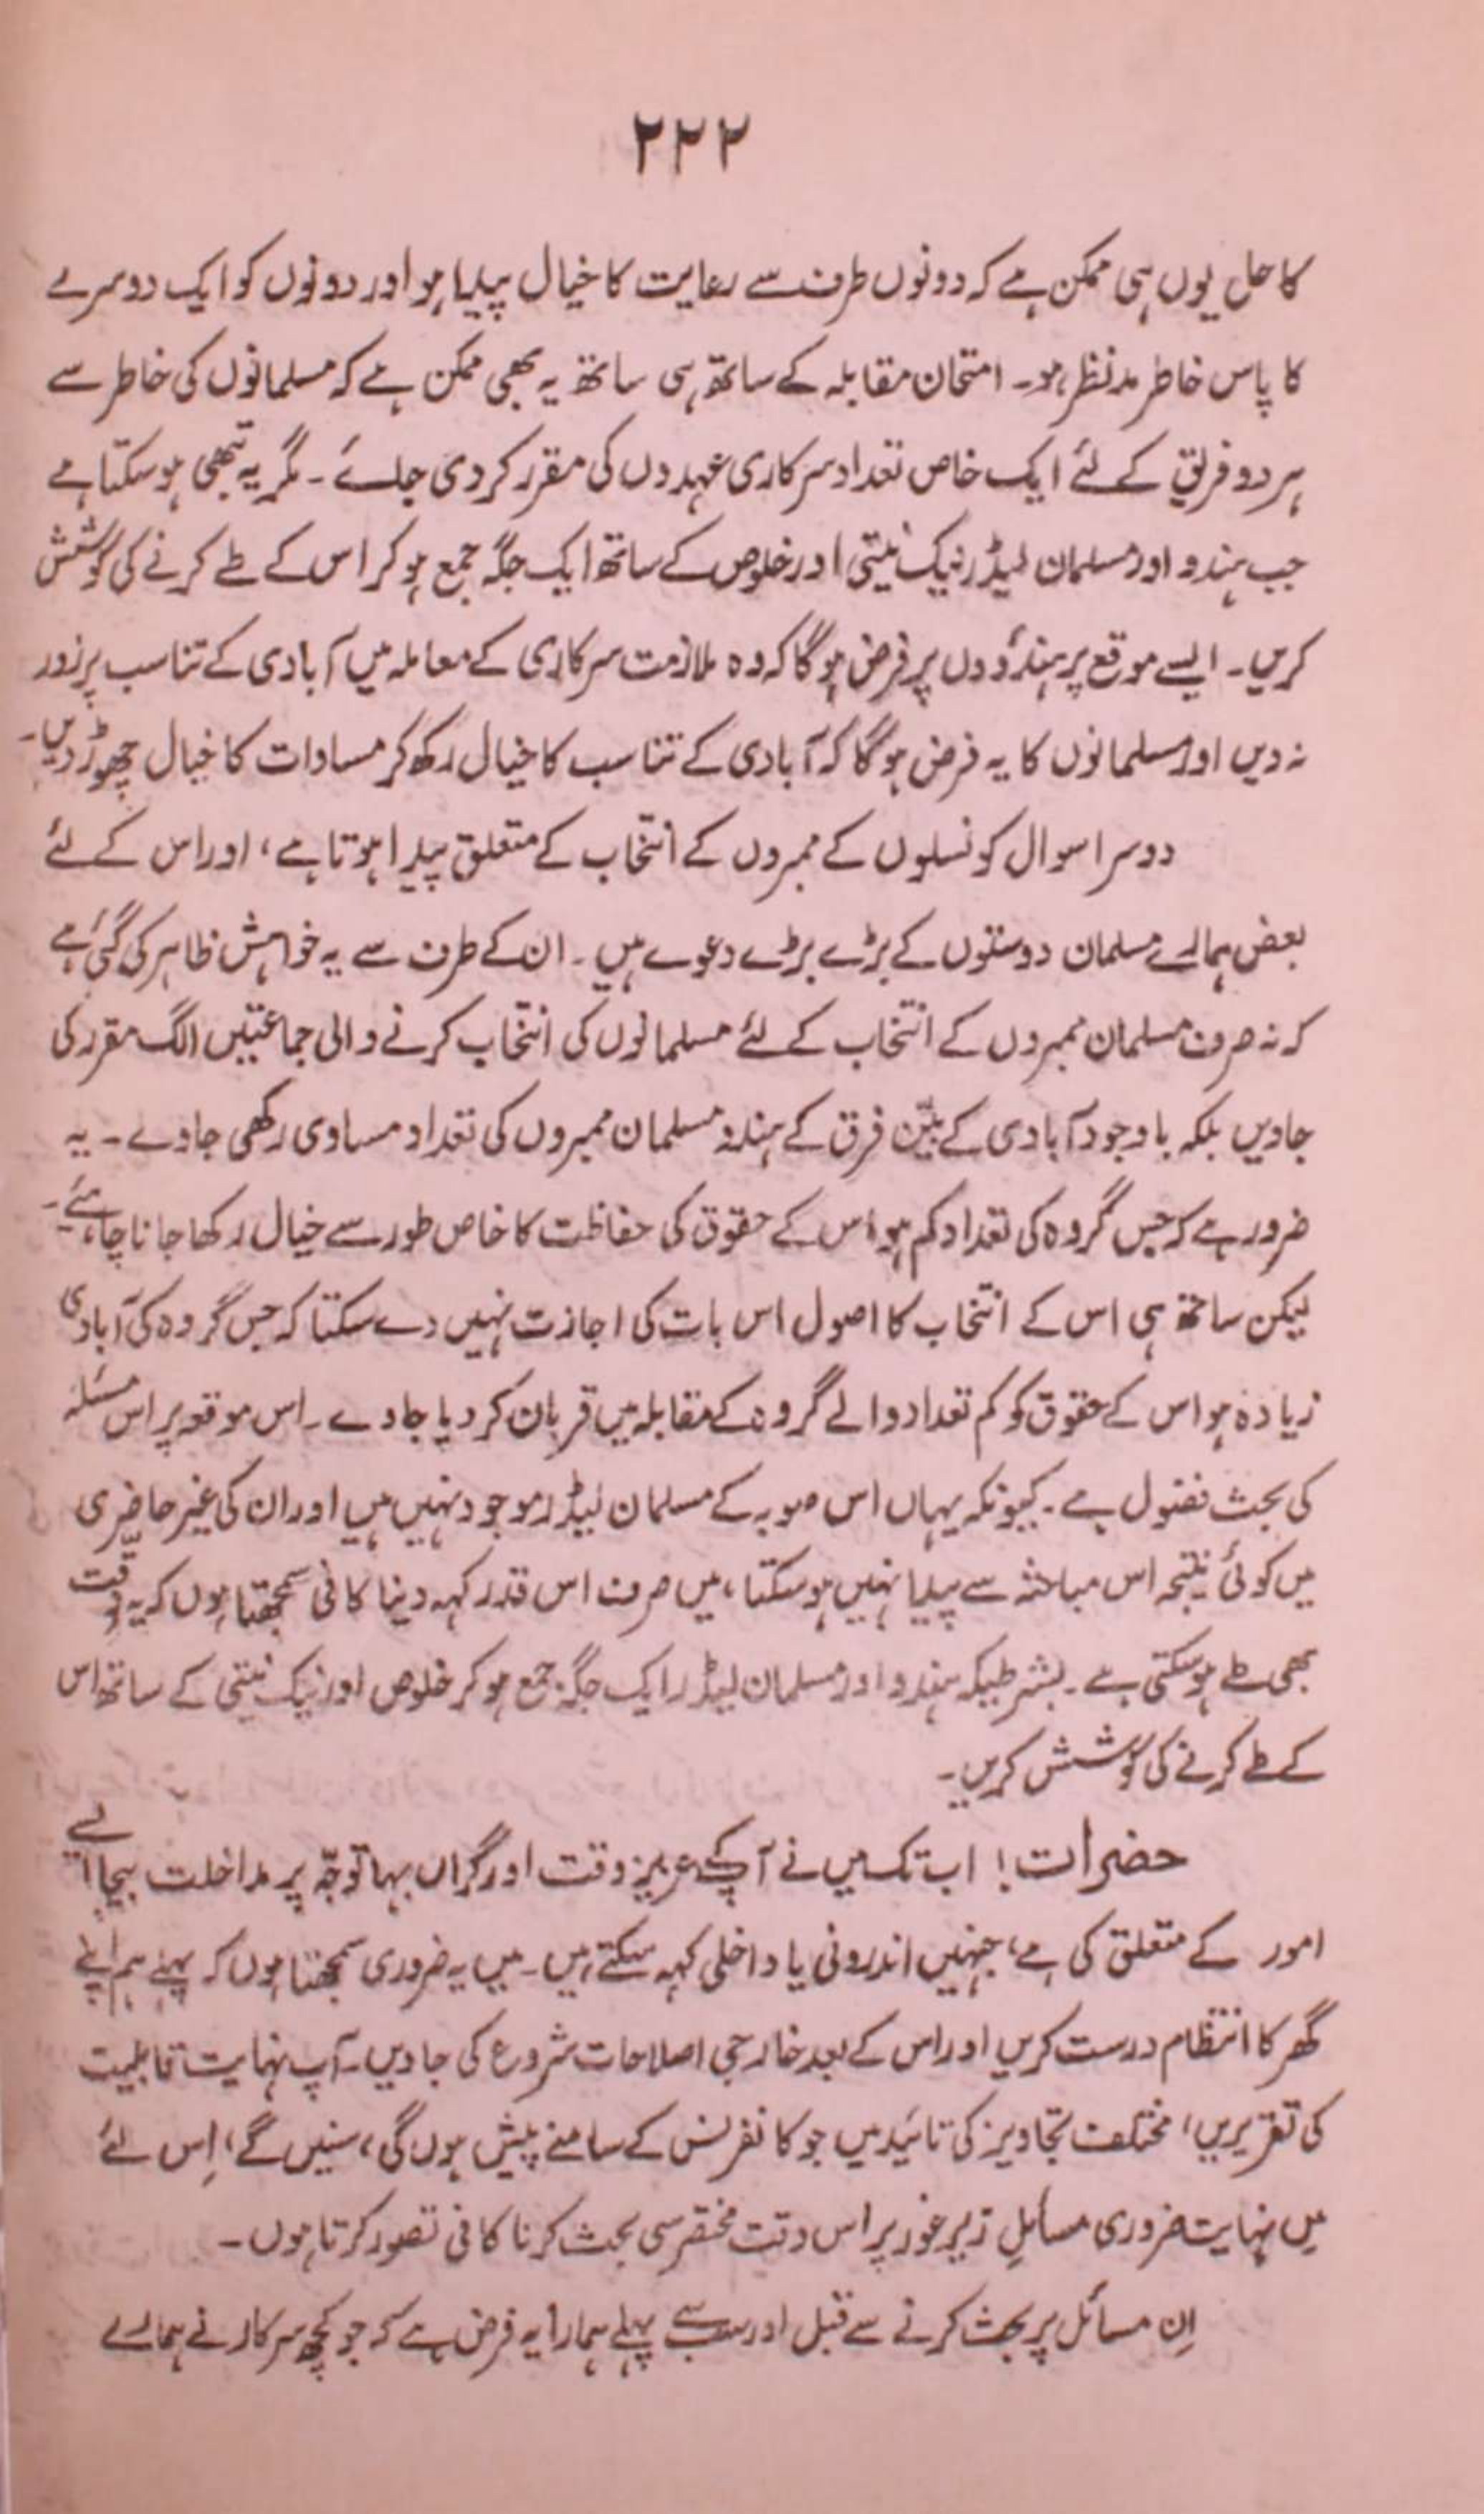 ۲۲۲
کا حل یوں ہی ممکن ہے کہ دونوں طرف سے رعایت کا خیال پیدا ہو اور دونوں کو ایک دوسرے
کا پاس خاطر مدنظر ہو۔ امتحان مقابلہ کے ساتھ ہی ساتھ یہ بھی ممکن ہے کہ مسلمانوں کی خاطر سے
ہر دو فریق کے لئے ایک خاص تعداد سرکاری عہدوں کی مقرر کر دی جائے۔ مگر یہ تبھی ہو سکتا ہے
جب ہندو اور مسلمان لیڈر نیک نیتی اور خلوص کے ساتھ ایک جگہ جمع ہو کر اس کے طے کرنے کی کوشش
کریں۔ ایسے موقع پر ہندوؤں پر فرض ہو گا کہ وہ ملازمت سرکاری کے معاملہ میں آبادی کے تناسب پر زور
نہ دیں اور مسلمانوں کا یہ فرض ہو گا کہ آبادی کے تناسب کا خیال رکھ کر مساوات کا خیال چھوڑ دیں۔
دوسرا سوال کونسلوں کے ممبروں کے انتخاب کے متعلق پیدا ہوتا ہے، اور اس کے لئے
بعض ہمارے مسلمان دوستوں کے بڑے بڑے دعوے ہیں۔ ان کے طرف سے یہ خواہش ظاہر کی گئی ہے
کہ نہ صرف مسلمان ممبروں کے انتخاب کے لئے مسلمانوں کی انتخاب کرنے والی جماعتیں الگ مقرر کی
جاویں بلکہ باوجود آبادی کے بیّن فرق کے ہندو مسلمان ممبروں کی تعداد مساوی رکھی جاوے۔ یہ
ضرور ہے کہ جس گروہ کی تعداد کم ہو اس کے حقوق کی حفاظت کا خاص طور سے خیال رکھا جانا چاہئے۔
لیکن ساتھ ہی اس کے انتخاب کا اصول اس بات کی اجازت نہیں دے سکتا کہ جس گروہ کی آبادی
زیادہ ہو اس کے حقوق کو کم تعداد والے گروہ کے مقابلہ میں قربان کر دیا جاوے۔ اس موقعہ پر اس مسئلہ
کی بحث فضول ہے۔ کیونکہ یہاں اس صوبہ کے مسلمان لیڈر موجود نہیں ہیں اور ان کی غیر حاضری
میں کوئی نتیجہ اس مباحثہ سے پیدا نہیں ہو سکتا، میں صرف اس قدر کہہ دینا کافی سمجھتا ہوں کہ یہ دقّت
بھی طے ہو سکتی ہے۔ بشرطیکہ ہندو اور مسلمان لیڈر ایک جگہ جمع ہو کر خلوص اور نیک نیتی کے ساتھ اس
کے طے کرنے کی کوشش کریں۔
حضرات! اب تک میں نے آپ کے عزیز وقت اور گراں بہا توجّہ پر مداخلت بیجا ایسے
امور کے متعلق کی ہے، جنہیں اندرونی یا داخلی کہہ سکتے ہیں۔ میں یہ ضروری سمجھتا ہوں کہ پہلے ہم اپنے
گھر کا انتظام درست کریں اور اس کے بعد خارجی اصلاحات شروع کی جاویں۔ آپ نہایت قابلیت
کی تقریریں، مختلف تجاویز کی تائید میں جو کانفرنس کے سامنے پیش ہوں گی، سنیں گے، اِس لئے
میں نہایت ضروری مسائلِ زیرِ غور پر اس وقت مختصر سی بحث کرنا کافی تصور کرتا ہوں۔
اِن مسائل پر بحث کرنے سے قبل اور سب سے پہلے ہمارا یہ فرض ہے کہ جو کچھ سرکار نے ہمارے